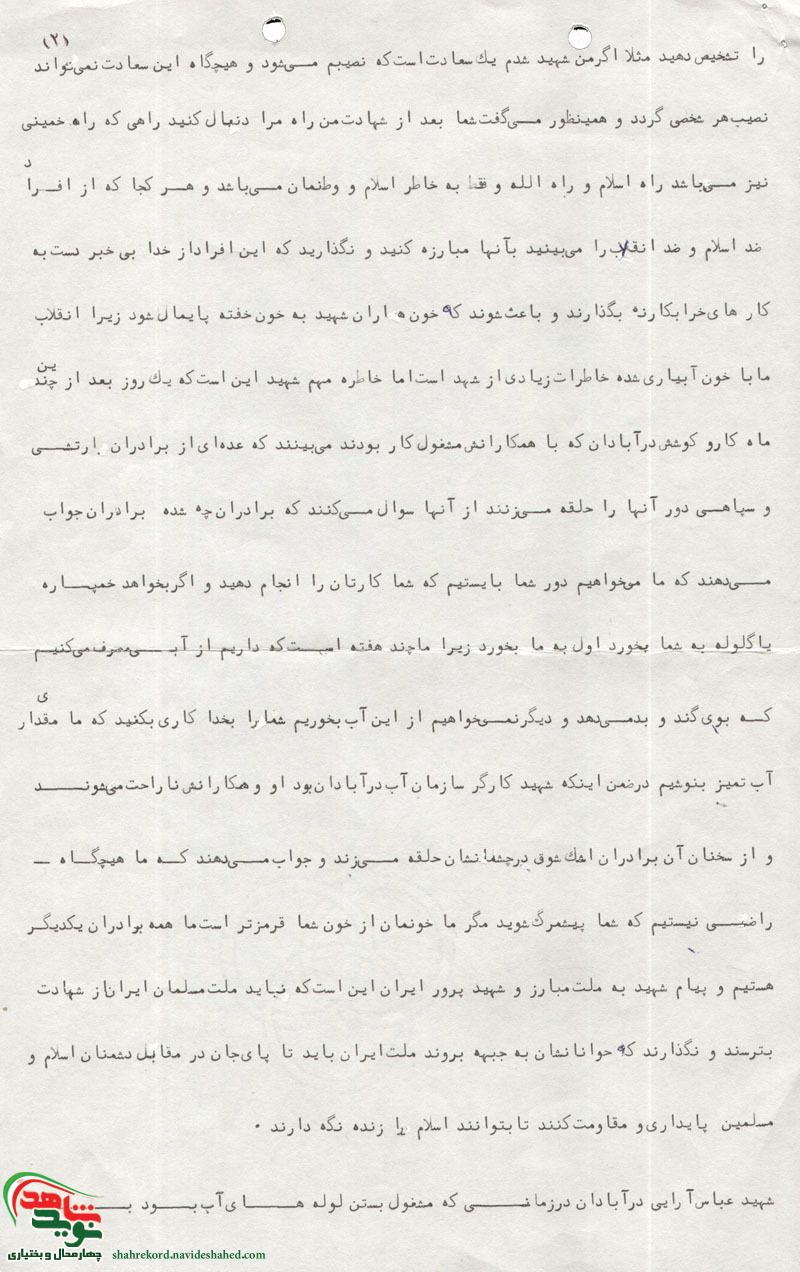 (۲)
را تشخیص دهید مثلا اگر من شهید شدم یك سعادت است که نصیبم می‌شود و هیچگاه این سعادت نمی‌تواند
نصیب هر شخصی گردد و همینطور می‌گفت شما بعد از شهادت من راه مرا دنبال کنید راهی که راه خمینی
نیز می‌باشد راه اسلام و راه الله و فقط به خاطر اسلام و وطنمان می‌باشد و هر کجا که از افراد
ضد اسلام و ضد انقلاب را می‌بینید بآنها مبارزه کنید و نگذارید که این افراد از خدا بی خبر دست به
کار های خرابکارنه بگذارند و باعث شوند که خون هاران شهید به خون خفته پایمال شود زیرا انقلاب
ما با خون آبیاری شده خاطرات زیادی از شهد است اما خاطره مهم شهید این است که یك روز بعد از چندین
ماه کار و کوشش در آبادان که با همکارانش مشغول کار بودند می‌بینند که عده‌ای از برادران ارتشی
و سپاهی دور آنها را حلقه می‌زنند از آنها سوال می‌کنند که برادران چه شده برادران جواب
می‌دهند که ما می‌خواهیم دور شما بایستیم که شما کارتان را انجام دهید و اگر بخواهد خمپاره
یا گلوله به شما بخورد اول به ما بخورد زیرا ما چند هفته است که داریم از آبی مصرف می‌کنیم
که بوی گند و بد می‌دهد و دیگر نمی‌خواهیم از این آب بخوریم شما را بخدا کاری بکنید که ما مقداری
آب تمیز بنوشیم در ضمن اینکه شهید کارگر سازمان آب در آبادان بود او و همکارانش ناراحت می‌شوند
و از سخنان آن برادران اشك شوق در چشمانشان حلقه می‌زند و جواب می‌دهند که ما هیچگاه ـ
راضی نیستیم که شما پیشمرگ شوید مگر ما خونمان از خون شما قرمزتر است ما همه برادران یکدیگر
هستیم و پیام شهید به ملت مبارز و شهید پرور ایران این است که نباید ملت مسلمان ایران از شهادت
بترسند و نگذارند که جوانانشان به جبهه بروند ملت ایران باید تا پای جان در مقابل دشمنان اسلام و
مسلمین پایداری و مقاومت کنند تا بتوانند اسلام را زنده نگه دارند .
شهید عباس آرایی در آبادان در زمانی که مشغول بستن لوله های آب بود بـ
نوید شاهد
چهارمحال و بختیاری
shahrekord.navideshahed.com